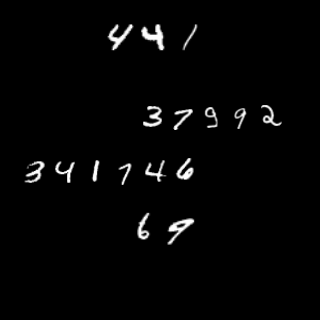 441
37992
341746
69